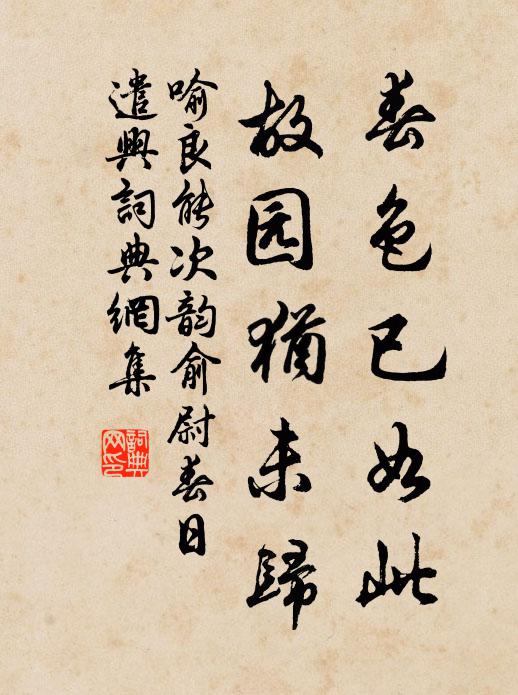 春色已如此
故园猶未歸
喻良能次韵俞尉春日
遣興詞典網集
詞典网印